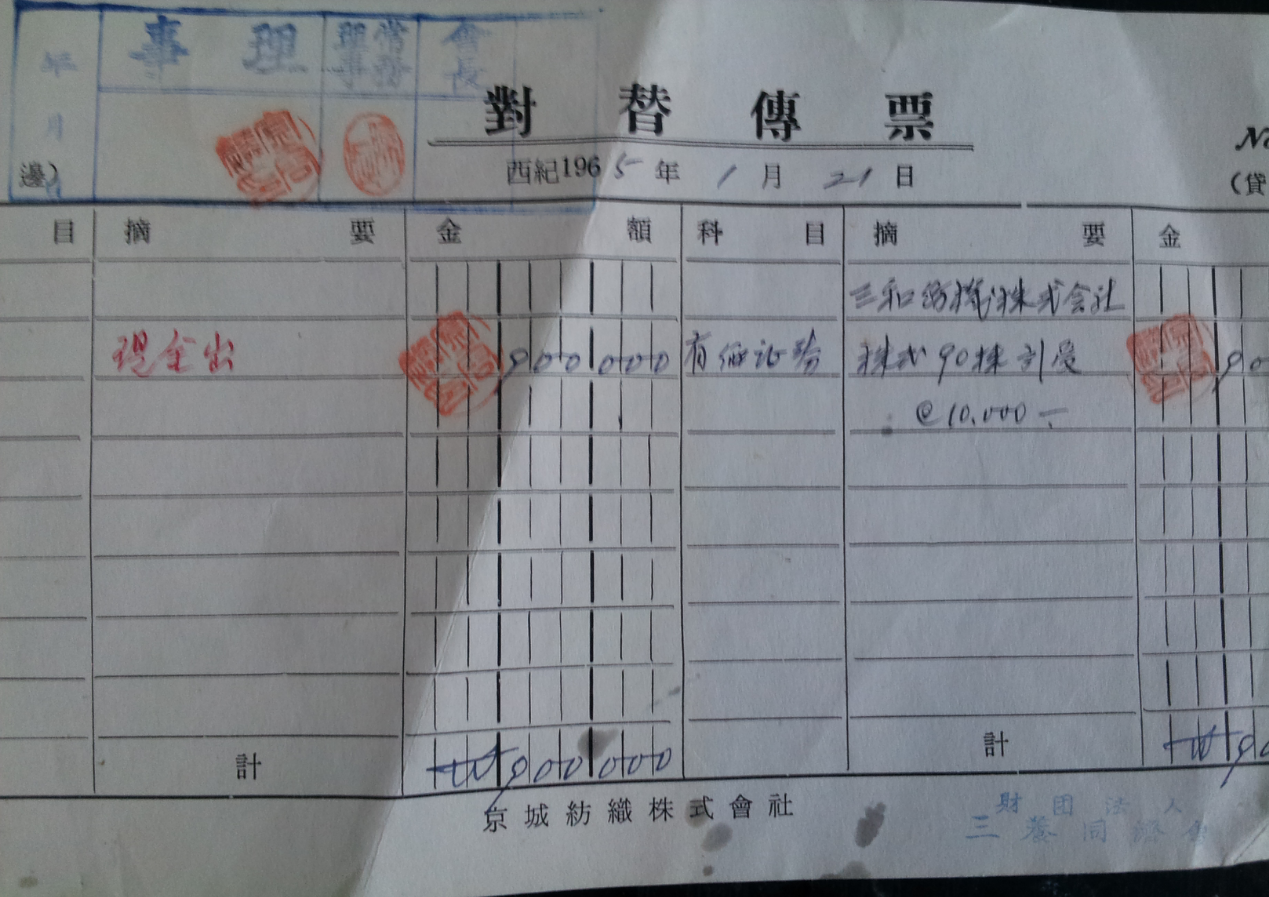 年 事 理 常務理事 會長
月
對替傳票
No
邊) 西紀1965年 1月 21日 (貸
目 摘要 金額 科目 摘要 金
三和紡織株式会社
現金出 900,000 有価证券 株式90株引受 90
@10,000-
計 ₩900,000 計 ₩90
京城紡織株式會社
財団法人
三養同濟會